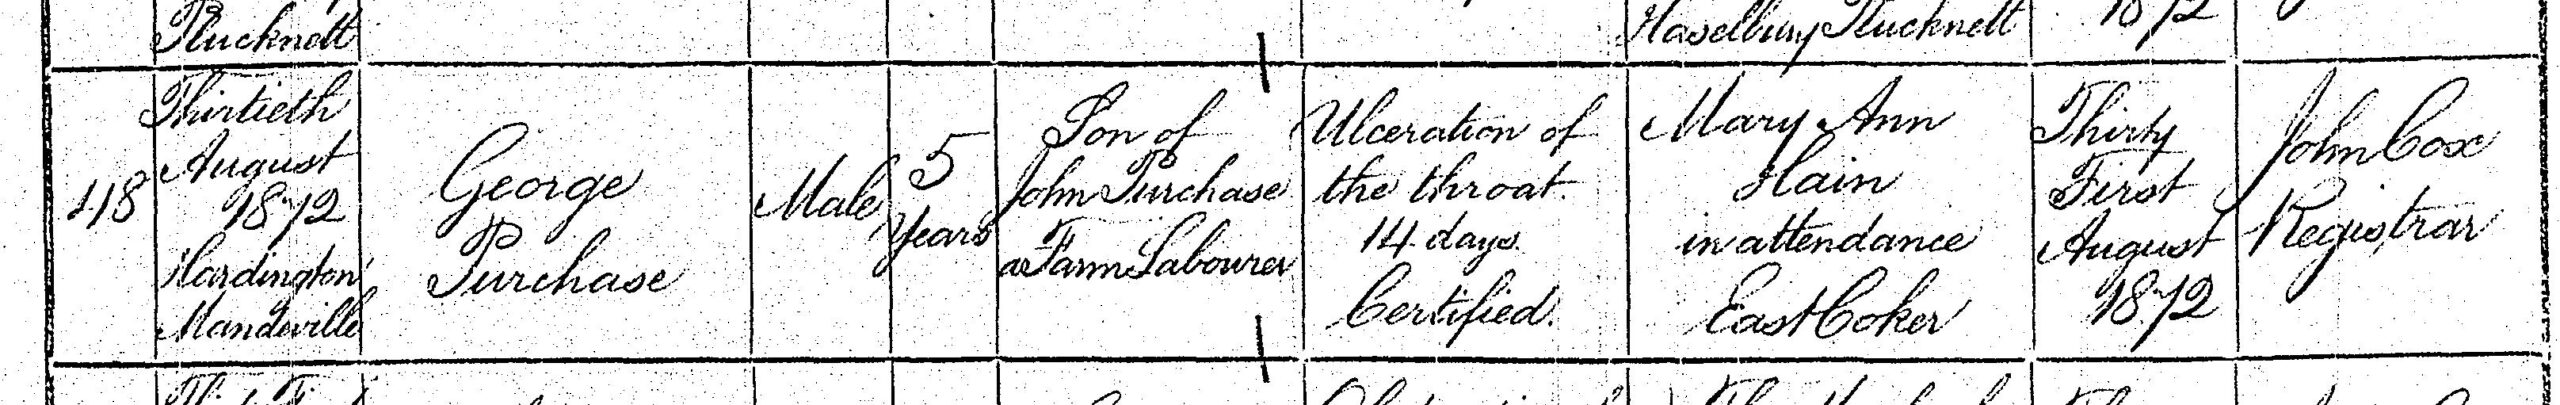 Plucknett
Haselbury Plucknett
1872
418
Thirtieth
August
1872
Hardington
Mandeville
George
Purchase
Male
5
Years
Son of
John Purchase
a Farm Labourer
Ulceration of
the throat.
14 days.
Certified.
Mary Ann
Hain
in attendance
East Coker
Thirty
First
August
1872
John Cox
Registrar